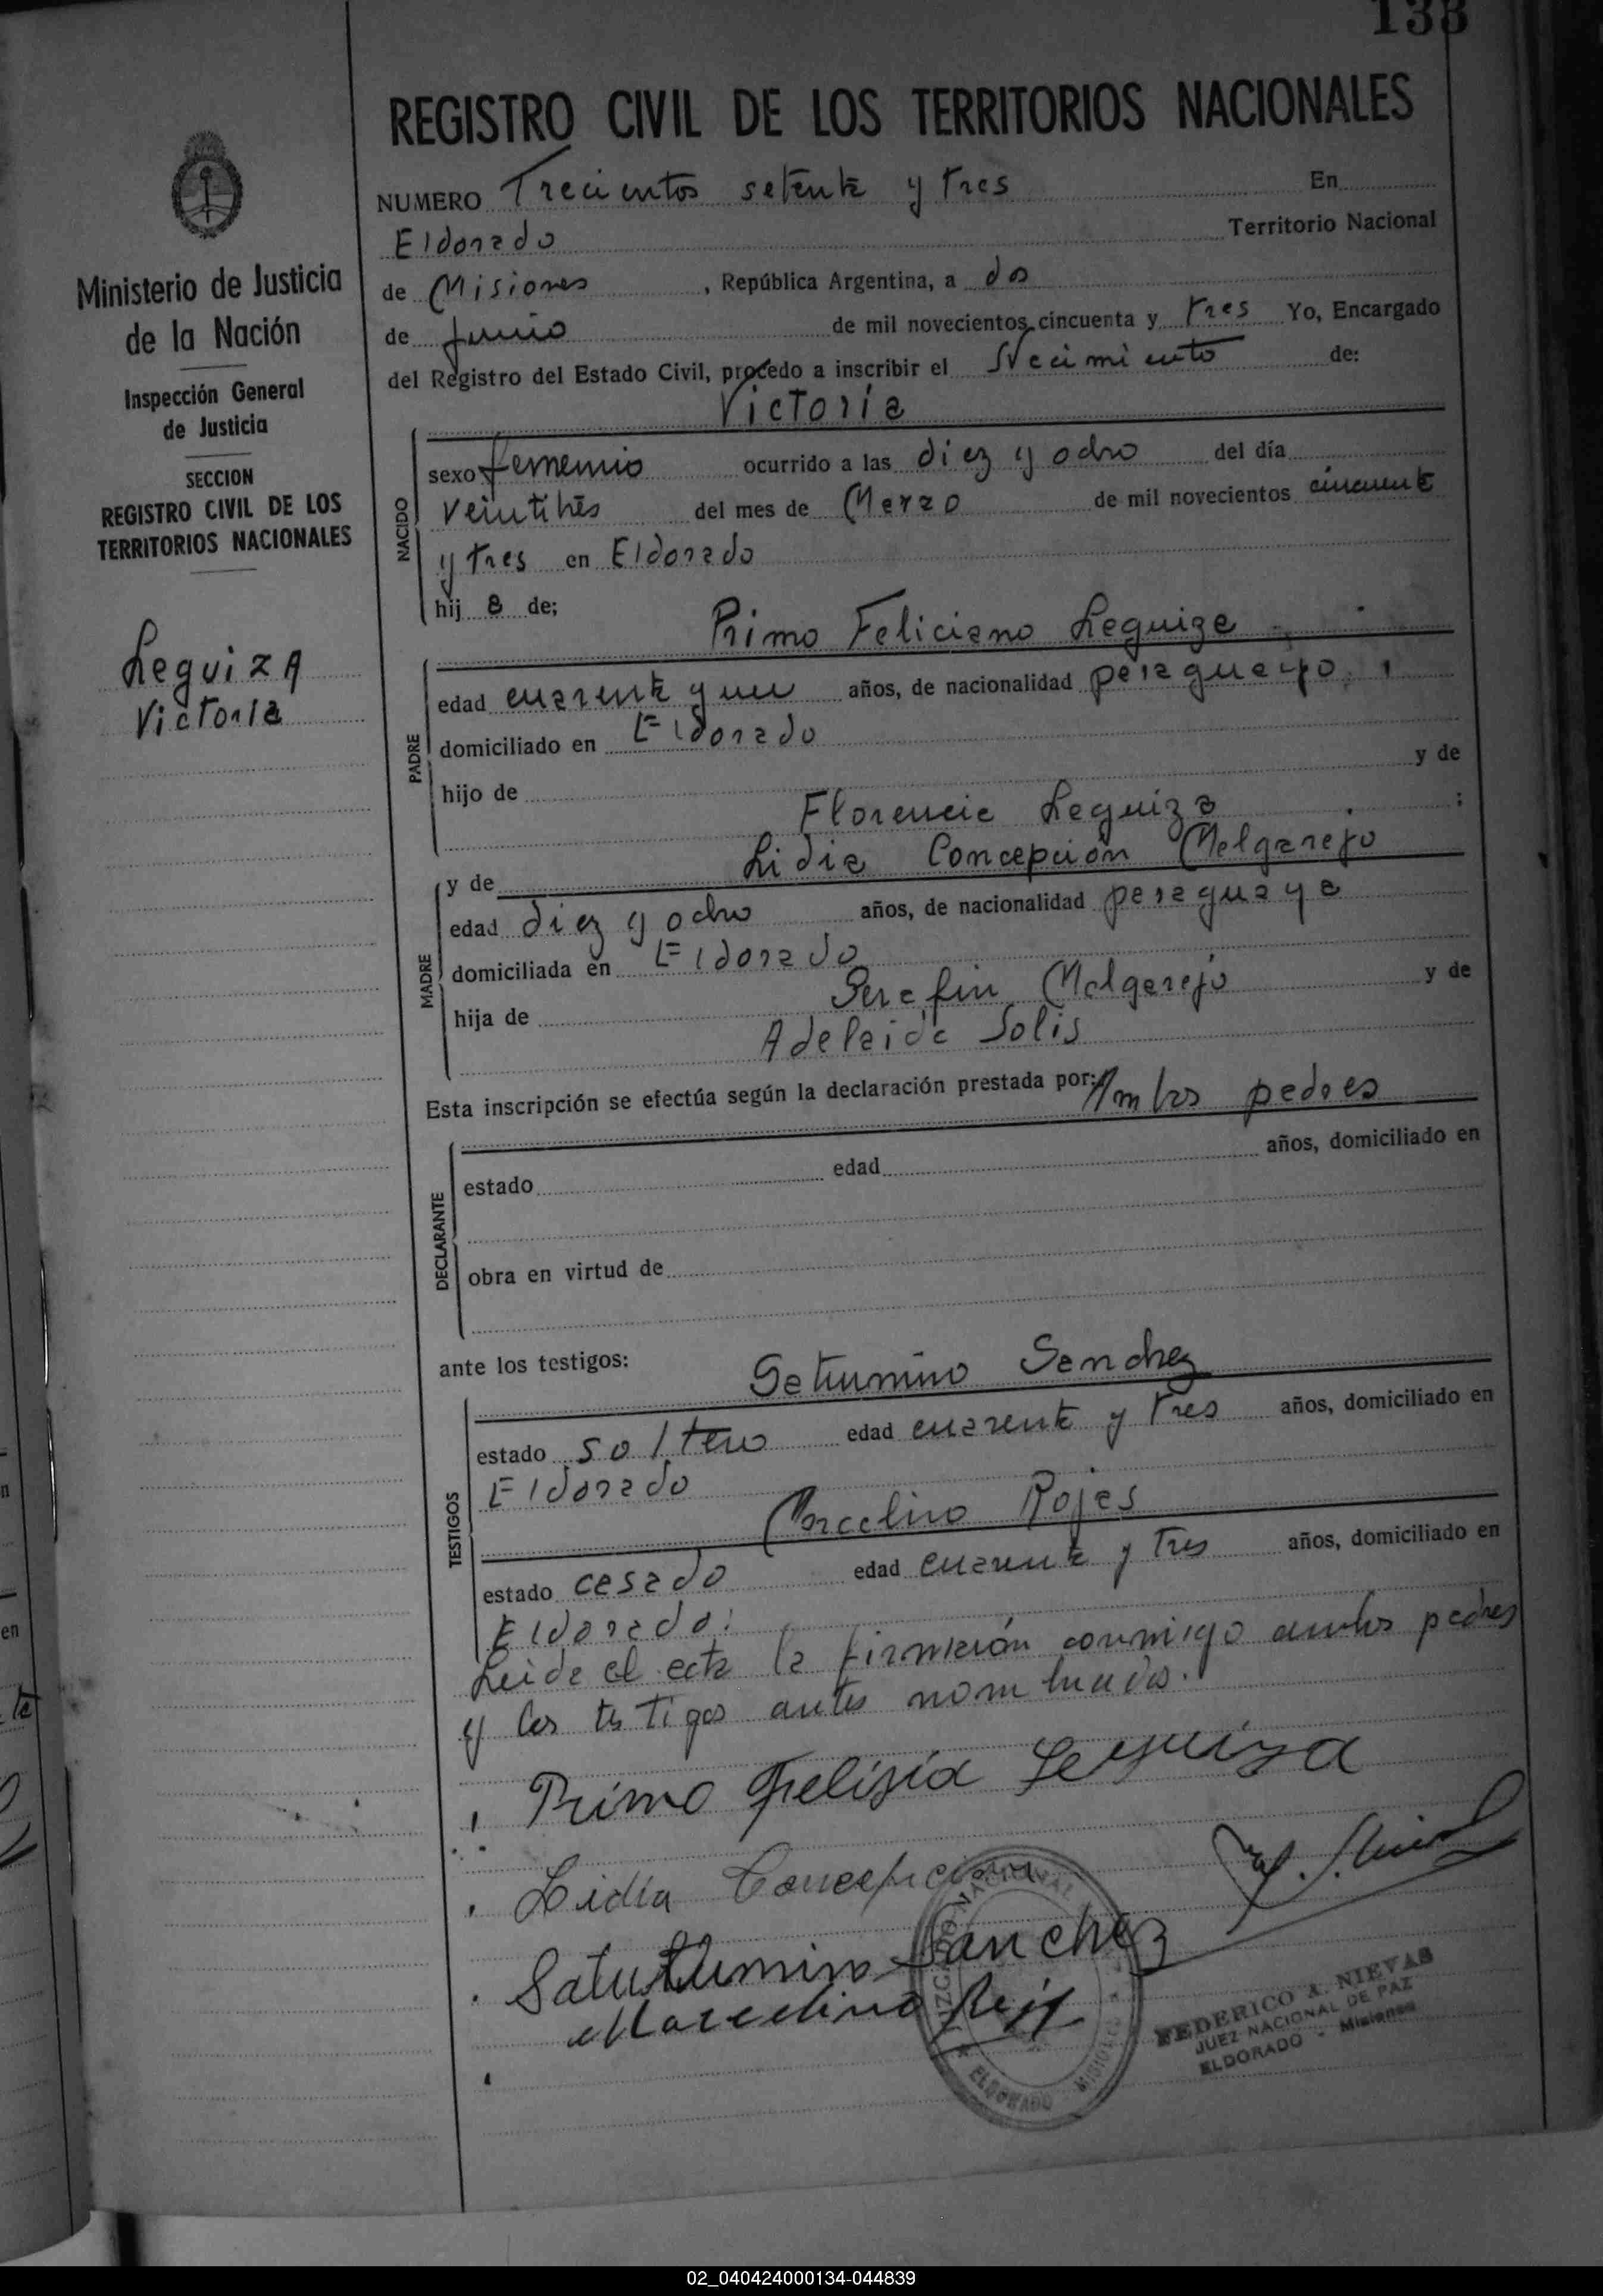 133
REGISTRO CIVIL DE LOS TERRITORIOS NACIONALES
NUMERO Trecientos setenta y tres En
Eldorado Territorio Nacional
de Misiones, República Argentina, a dos
de Junio de mil novecientos cincuenta y tres Yo, Encargado
del Registro del Estado Civil, procedo a inscribir el Nacimiento de:
Victoria
sexo femenino ocurrido a las diez y ocho del día
veintitrés del mes de Marzo de mil novecientos cincuenta
y tres en Eldorado
hija de;
NACIDO
Primo Feliciano Leguiza
edad cuarenta y un años, de nacionalidad paraguayo
domiciliado en Eldorado
hijo de y de
Florencia Leguiza ;
PADRE
y de Lidia Concepción Melgarejo
edad diez y ocho años, de nacionalidad paraguaya
domiciliada en Eldorado
hija de Serafin Melgarejo y de
Adelaida Solis
MADRE
Esta inscripción se efectúa según la declaración prestada por: Ambos padres
estado edad años, domiciliado en
obra en virtud de
DECLARANTE
ante los testigos: Saturnino Sanchez
estado soltero edad cuarenta y tres años, domiciliado en
Eldorado
Marcelino Rojas
estado casado edad cuarenta y tres años, domiciliado en
Eldorado.
TESTIGOS
Leida el acta la firmarón conmigo ambos padres
y los testigos antes nombrados.
Primo Felisia Leguiza
Lidia Concepcion
Saturnino Sanchez
Marcelino
JUZGADO NACIONAL
ELDORADO - MISIONES
FEDERICO A. NIEVAS
JUEZ NACIONAL DE PAZ
ELDORADO - Misiones
Ministerio de Justicia
de la Nación
Inspección General
de Justicia
SECCION
REGISTRO CIVIL DE LOS
TERRITORIOS NACIONALES
Leguiza
Victoria
02_040424000134-044839